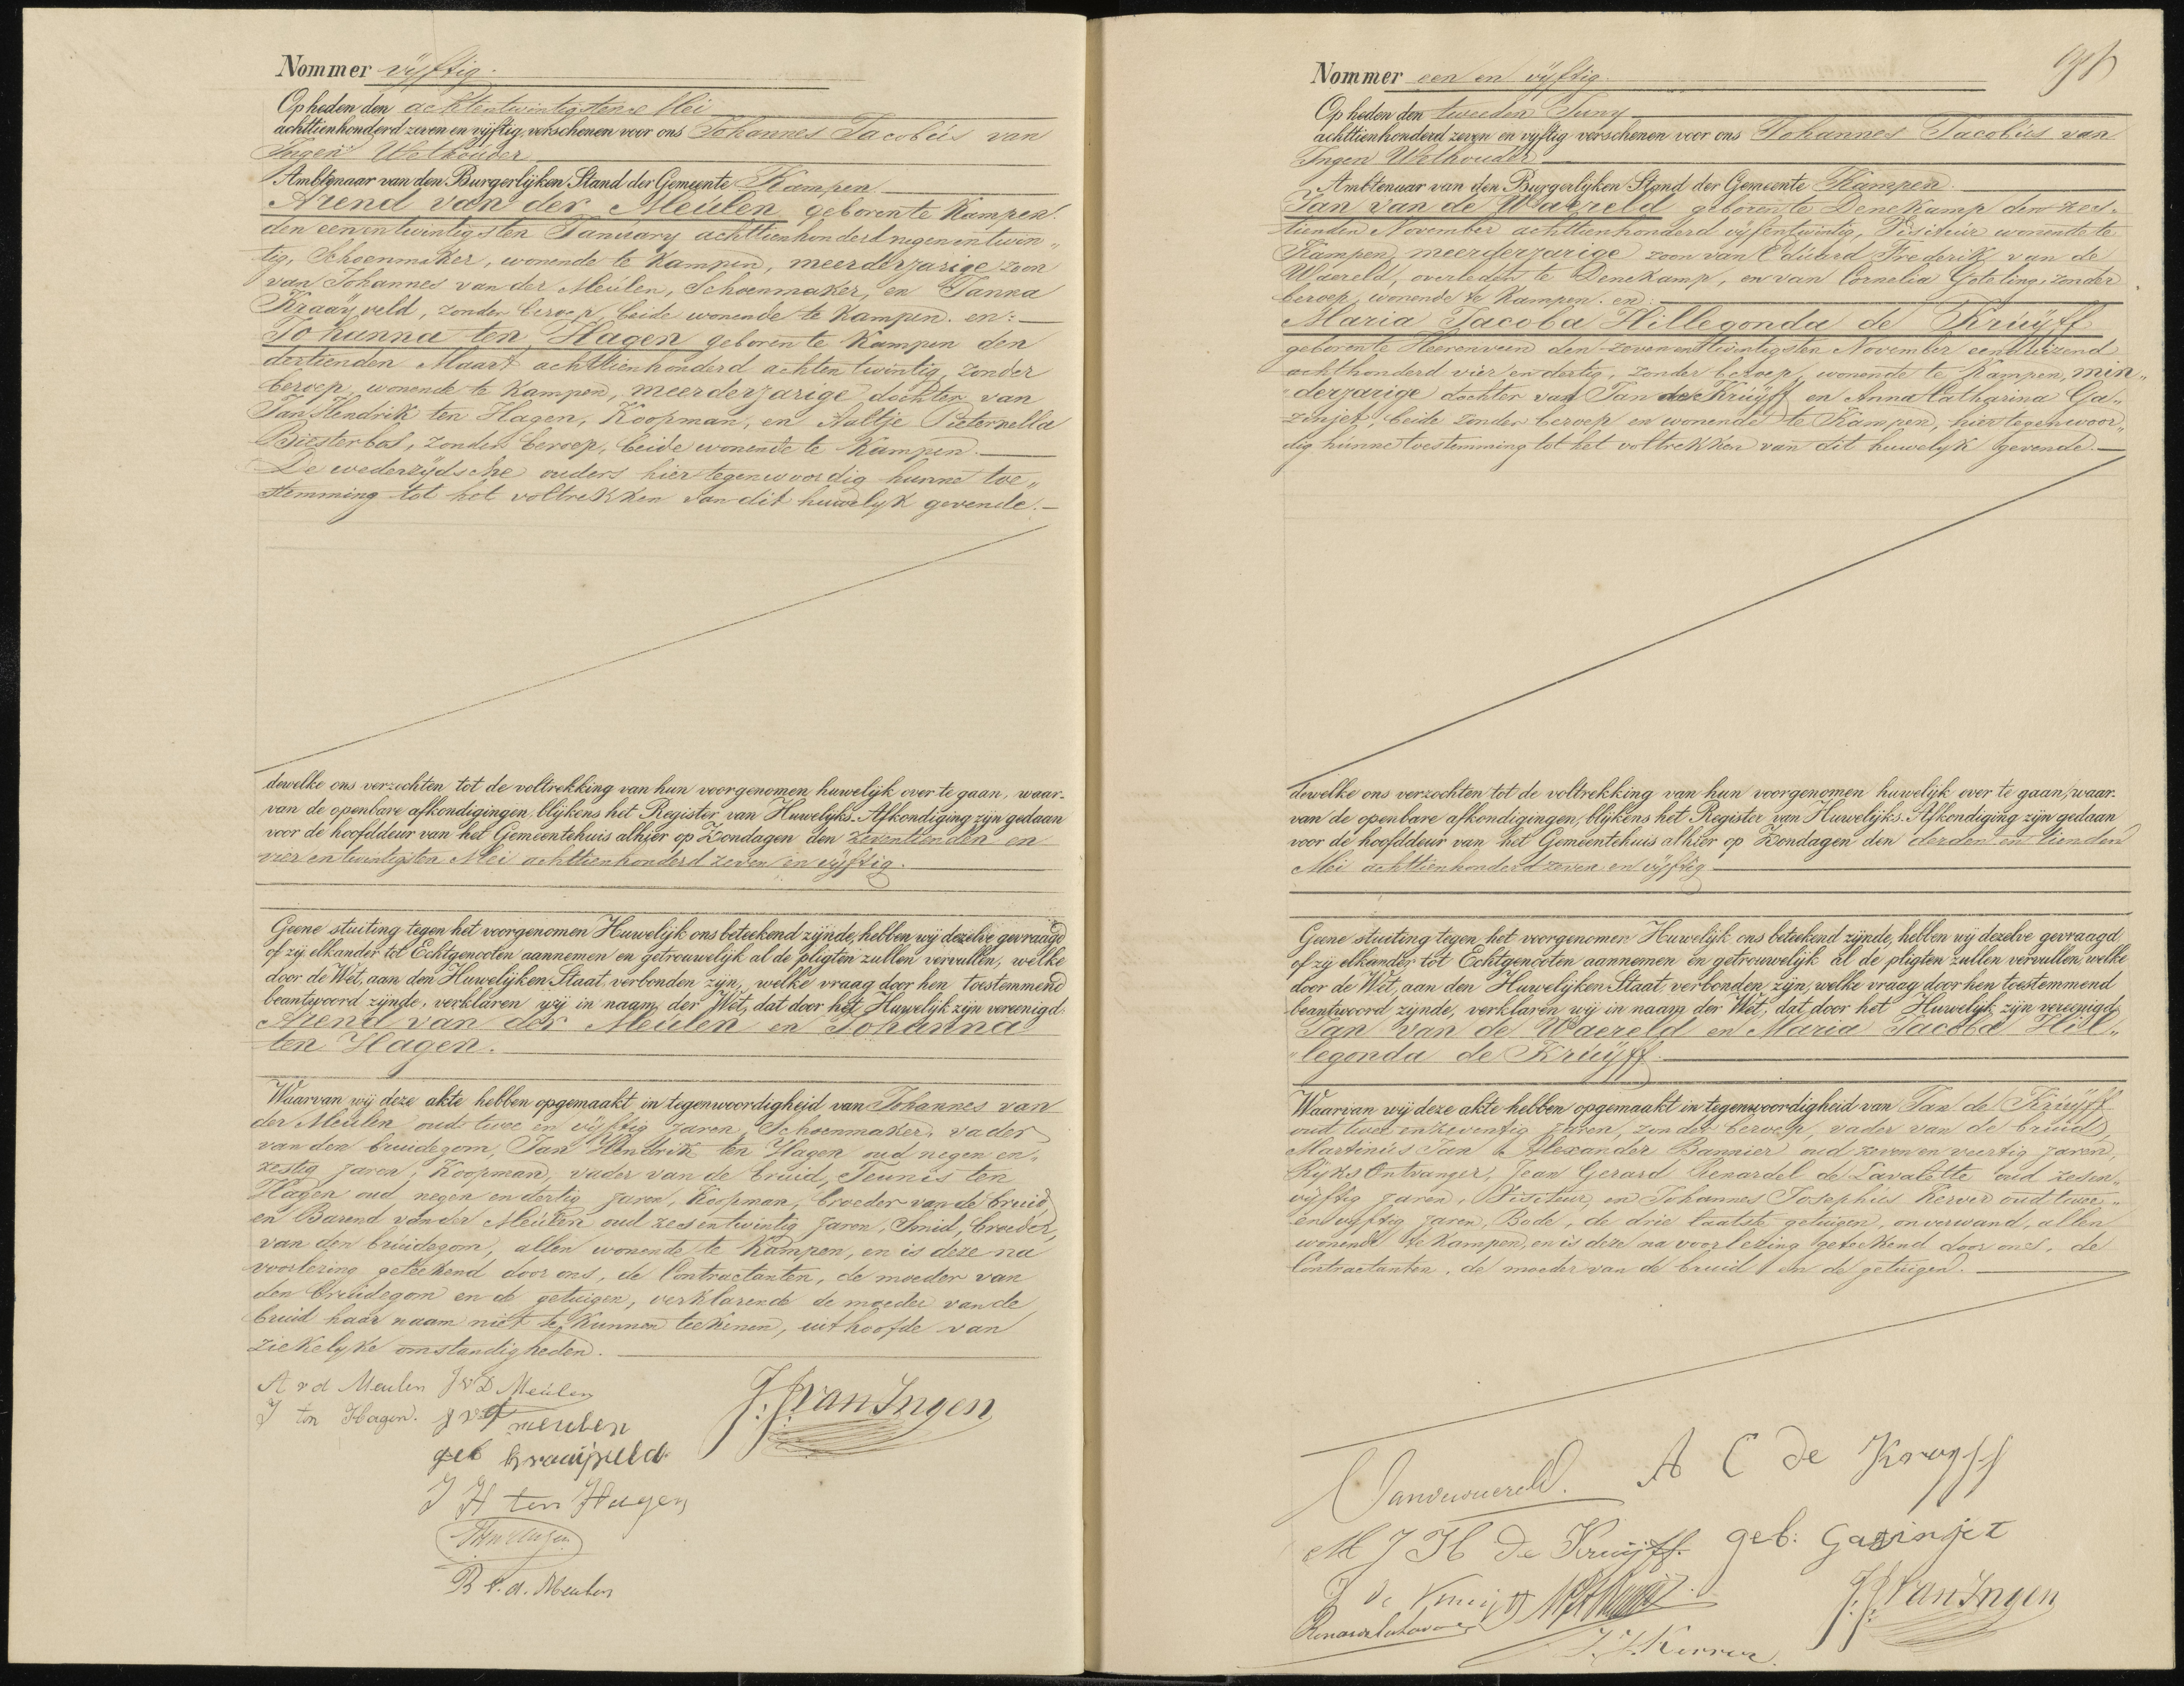 Nommer vijftig.
Op heden den achtentwintigsten Mei
achttienhonderd zeven en vijftig, verschenen voor ons Johannes Jacobus van
Ingen Wethouder
Ambtenaar van den Burgerlijken Stand der Gemeente Kampen
Arend van der Meulen geboren te Kampen
den eenentwintigsten January achttienhonderd negenentwin„
tig, Schoenmaker, wonende te Kampen, meerderjarige zoon
van Johannes van der Meulen, Schoenmaker, en Janna
Kraaijveld, zonder beroep, beide wonende te Kampen. en:
Johanna ten Hagen geboren te Kampen den
dertienden Maart achttienhonderd achtentwintig, zonder
beroep, wonende te Kampen, meerderjarige dochter van
Jan Hendrik ten Hagen, Koopman, en Aaltje Pieternella
Biesterbos, zonder beroep, beide wonende te Kampen.
De wederzijdsche ouders hier tegenwoordig hunne toe„
stemming tot het voltrekken van dit huwelijk gevende.
dewelke ons verzochten tot de voltrekking van hun voorgenomen huwelijk over te gaan, waar-
van de openbare afkondigingen, blijkens het Register van Huwelijks-Afkondiging zijn gedaan
voor de hoofddeur van het Gemeentehuis alhier op Zondagen den zeventienden en
vier en twintigsten Mei achttienhonderd zeven en vijftig.
Geene stuiting tegen het voorgenomen Huwelijk ons beteekend zijnde, hebben wij dezelve gevraagd
of zij elkander tot Echtgenooten aannemen en getrouwelijk al de pligten zullen vervullen, welke
door de Wet, aan den Huwelijken Staat verbonden zijn, welke vraag door hen toestemmend
beantwoord zijnde, verklaren wij in naam der Wet, dat door het Huwelijk zijn vereenigd
Arend van der Meulen en Johanna
ten Hagen.
Waarvan wij deze akte hebben opgemaakt in tegenwoordigheid van Johannes van
der Meulen oud twee en vijftig jaren, Schoenmaker, vader
van den bruidegom, Jan Hendrik ten Hagen oud negen en„
zestig jaren, Koopman, vader van de bruid, Teunis ten
Hagen oud negen en dertig jaren, Koopman, broeder van de bruid,
en Barend van der Meulen oud zesentwintig jaren, Smid, broeder,
van den bruidegom, allen wonende te Kampen, en is deze na
voorlezing geteekend door ons, de Contractanten, de moeder van
den bruidegom en de getuigen, verklarende de moeder van de
bruid haar naam niet te kunnen teekenen, uit hoofde van
ziekelyke omstandigheden.
A v d Meulen J v D Meulen
J ten Hagen. J v d meulen
geb kraaijveld
J.J. van Ingen
J H ten Hagen
B v. d. Meulen
Nommer een en vijftig.
Op heden den tweeden Juny
achttienhonderd zeven en vijftig verschenen voor ons Johannes Jacobus van
Ingen Wethouder
Ambtenaar van den Burgerlijken Stand der Gemeente Kampen.
Jan van de Waereld geboren te Denekamp den zes„
tienden November achttienhonderd vijfentwintig, Visiteur wonende te
Kampen, meerderjarige zoon van Eduard Frederik van de
Waereld, overleden te Denekamp, en van Cornelia Goteling, zonder
beroep, wonende te Kampen. en:
Maria Jacoba Hillegonda de Kruijff
geboren te Heerenveen den zevenentwintigsten November eenduizend
achthonderd vier en dertig, zonder beroep, wonende te Kampen, min„
derjarige dochter van Jan de Kruijff en Anna Catharina Ga„
zinjet, beide zonder beroep en wonende te Kampen, hier tegenwoor„
dig hunne toestemming tot het voltrekken van dit huwelijk gevende.
dewelke ons verzochten tot de voltrekking van hun voorgenomen huwelijk over te gaan, waar-
van de openbare afkondigingen, blijkens het Register van Huwelijks-Afkondiging zijn gedaan
voor de hoofddeur van het Gemeentehuis alhier op Zondagen den derden en tienden
Mei achttienhonderd zeven en vijftig
Geene stuiting tegen het voorgenomen Huwelijk ons beteekend zijnde, hebben wij dezelve gevraagd
of zij elkander tot Echtgenooten aannemen en getrouwelijk al de pligten zullen vervullen, welke
door de Wet, aan den Huwelijken Staat verbonden zijn, welke vraag door hen toestemmend
beantwoord zijnde, verklaren wij in naam der Wet, dat door het Huwelijk zijn vereenigd
Jan van de Waereld en Maria Jacoba Hil„
„legonda de Kruijff.
Waarvan wij deze akte hebben opgemaakt in tegenwoordigheid van Jan de Kruijff
oud twee en zeventig jaren, zonder beroep, vader van de bruid,
Martinus Jan Alexander Bannier oud zeven en veertig jaren,
Rijks Ontvanger, Jean Gerard Renardel de Lavalette oud zesen„
vijftig jaren, Visiteur, en Johannes Josephus Kerver oud twee„
en vijftig jaren, Bode, de drie laatste getuigen, onverwand, allen
wonende te Kampen, en is deze na voorlezing geteekend door ons, de
Contractanten, de moeder van de bruid en de getuigen.
Vandewaereld. A C de Kruyff
M J H de Kruijff. geb: Gazinjet
J de Kruijff
J.J. van Ingen
J. J. Kerver.